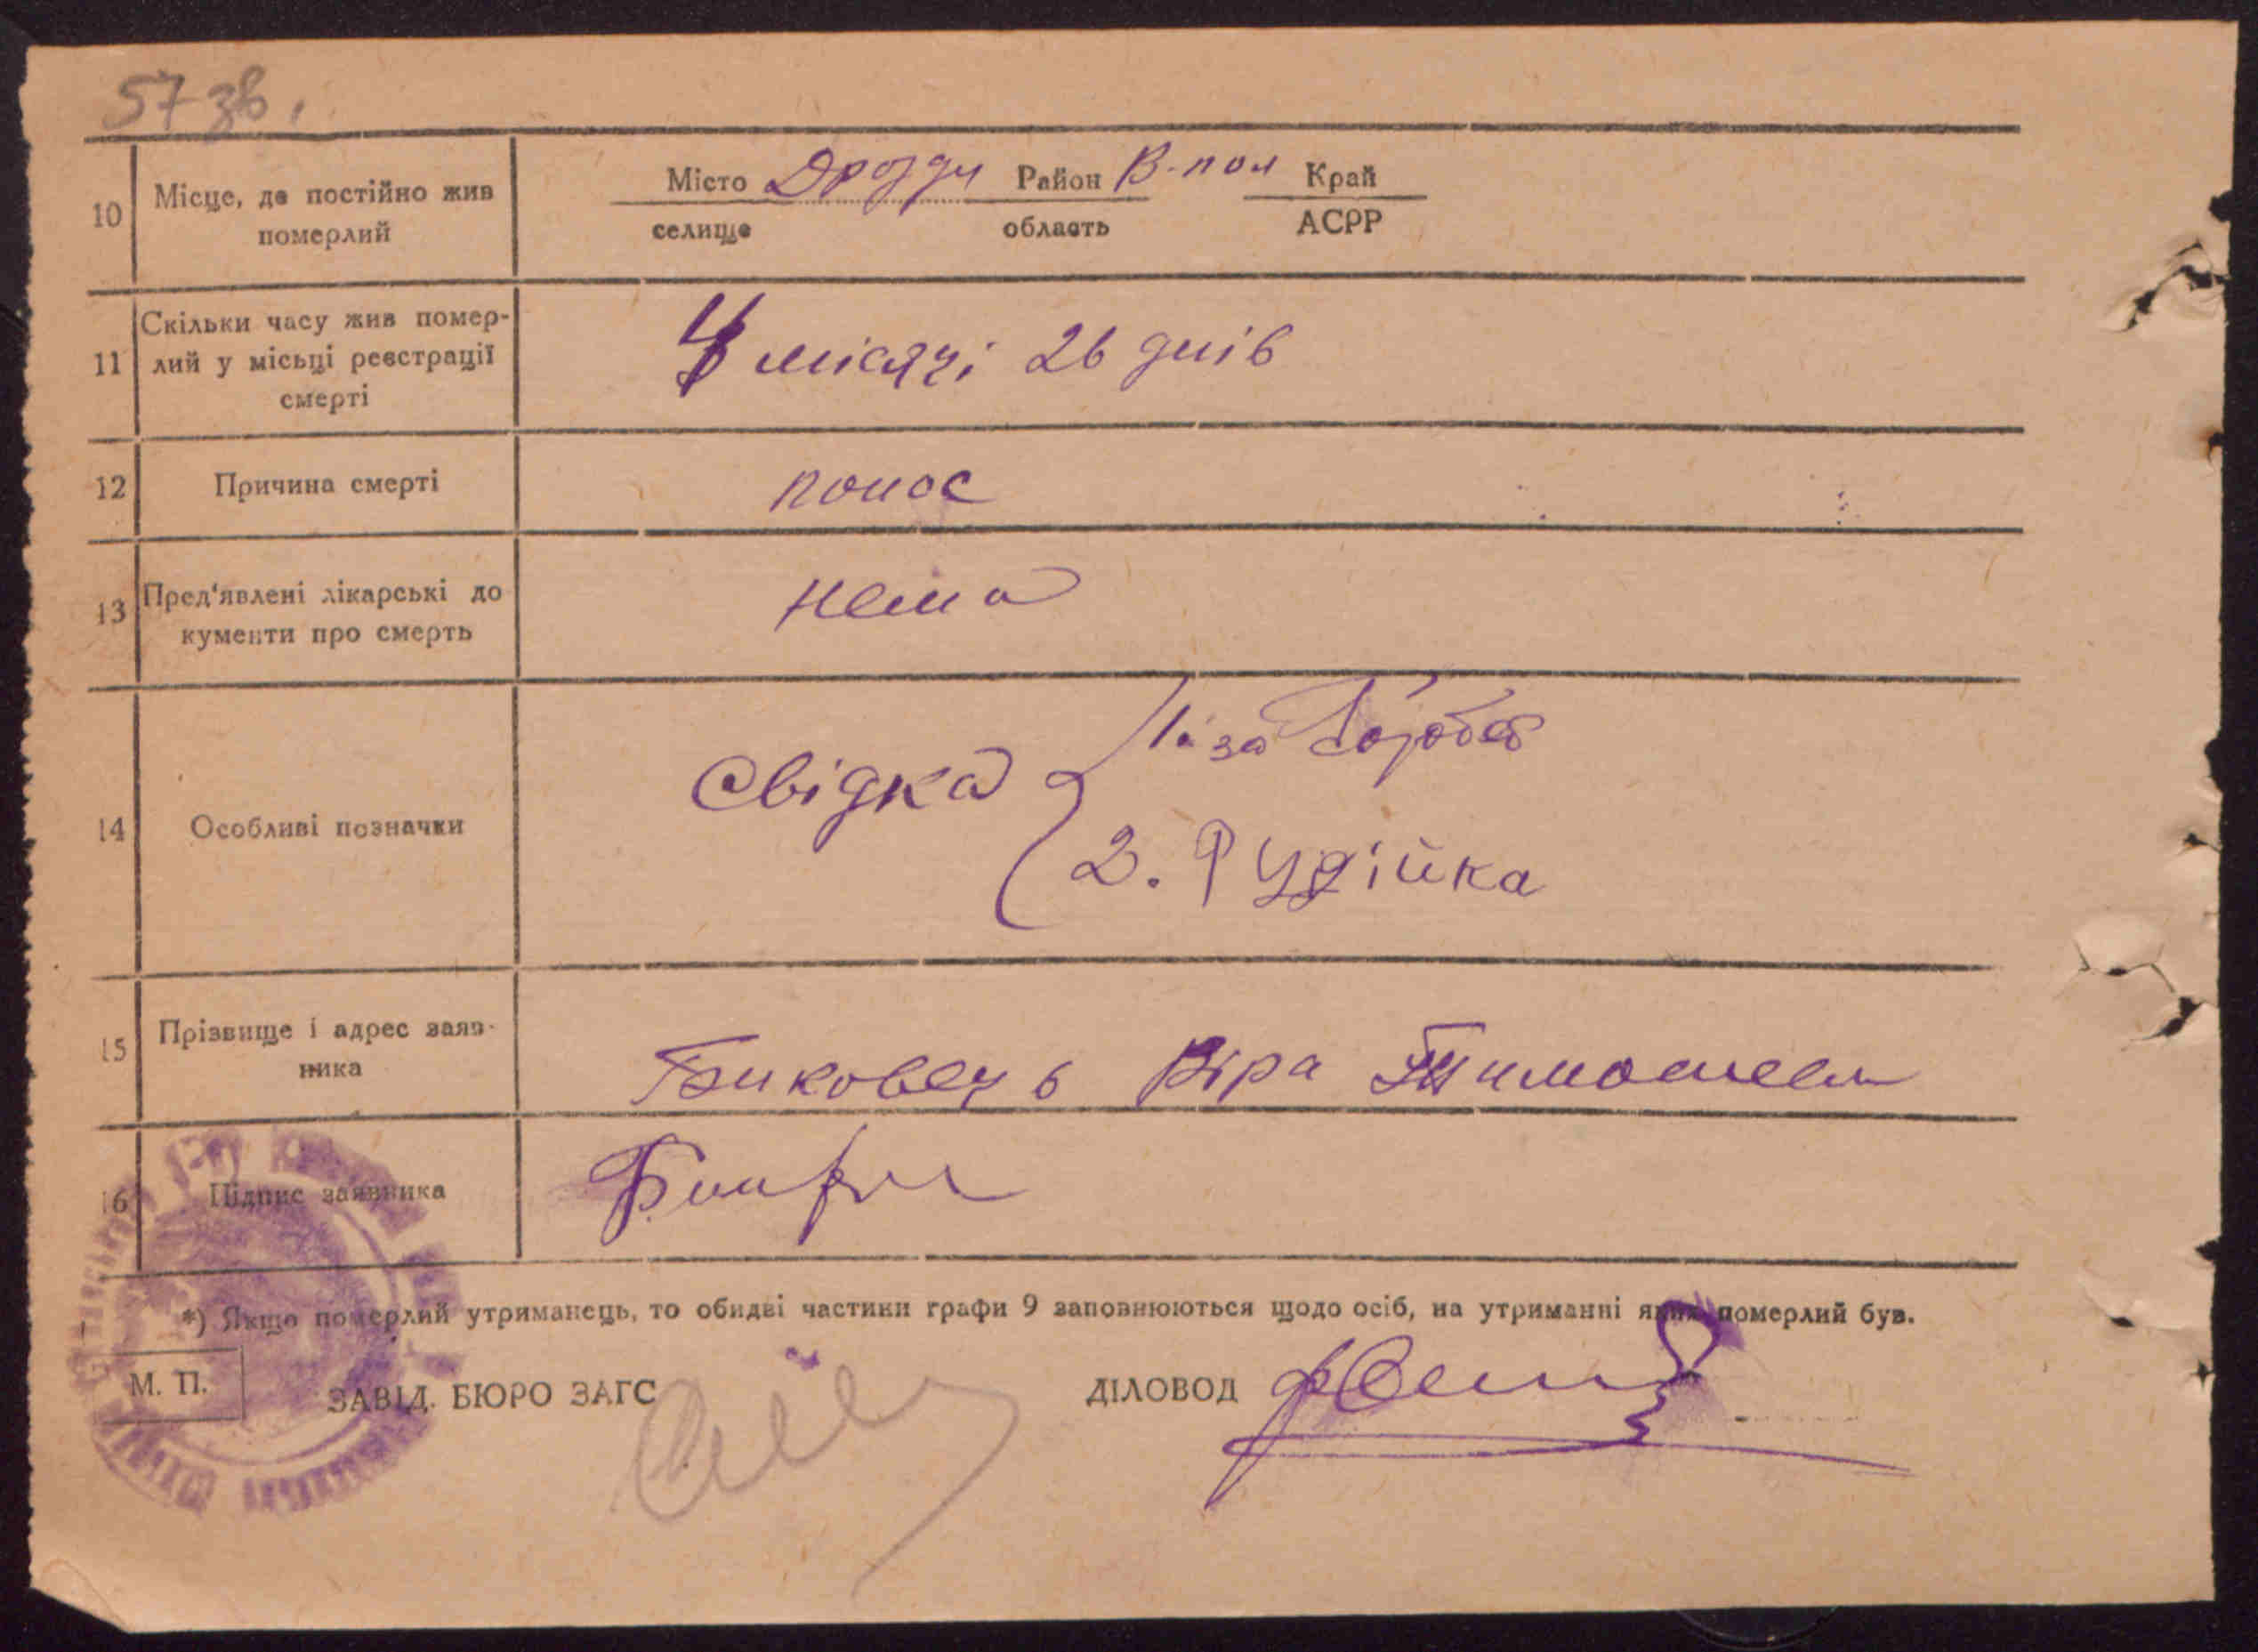 57 зв.
10 Місце, де постійно жив померлий
Місто Дрозди Район В-пол Край
селище область АСРР
11 Скільки часу жив помер-
лий у місьці реєстрації
смерті
4 місяці 26 днів
12 Причина смерті понос
13 Пред'явлені лікарські до
кументи про смерть
нема
14 Особливі позначки
Свідка
2. Рудійка
15 Прізвище і адрес заяв-
ника
Биковець Віра
16 Підпис заявника
*) Якщо померлий утриманець, то обидві частини графи 9 заповнюються щодо осіб, на утриманні яких померлий був.
М. П. ЗАВІД. БЮРО ЗАГС ДІЛОВОД